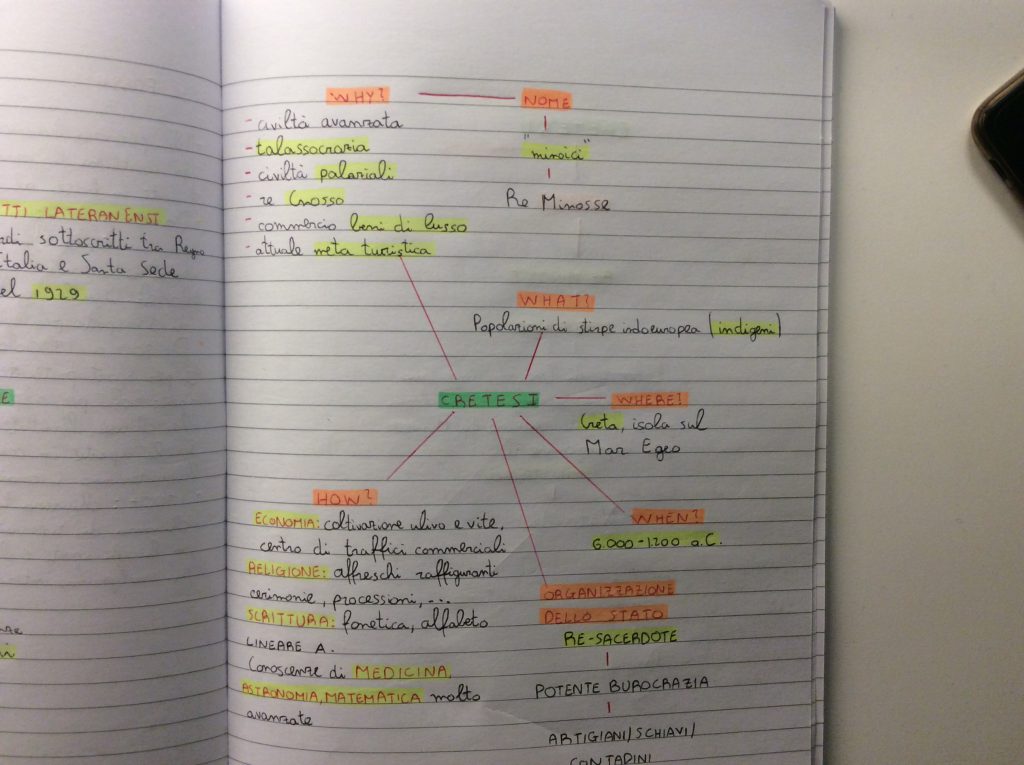 TTI LATERANENSI
rdi sottoscritti tra Regno
Italia e Santa Sede
el 1929
E
WHY?
- civiltà avanzata
- talassocrazia
- civiltà palaziali
- re Cnosso
- commercio beni di lusso
- attuale meta turistica
NOME
"minoici"
Re Minosse
WHAT?
Popolazioni di stirpe indoeuropea (indigeni)
CRETESI
WHERE?
Creta, isola sul
Mar Egeo
HOW?
ECONOMIA: coltivazione ulivo e vite,
centro di traffici commerciali
RELIGIONE: affreschi raffiguranti
cerimonie, processioni, ...
SCRITTURA: fonetica, alfabeto
LINEARE A.
Conoscenze di MEDICINA,
ASTRONOMIA, MATEMATICA molto
avanzate
WHEN?
6.000-1200 a.C.
ORGANIZZAZIONE
DELLO STATO
RE-SACERDOTE
POTENTE BUROCRAZIA
ARTIGIANI/SCHIAVI/
CONTADINI